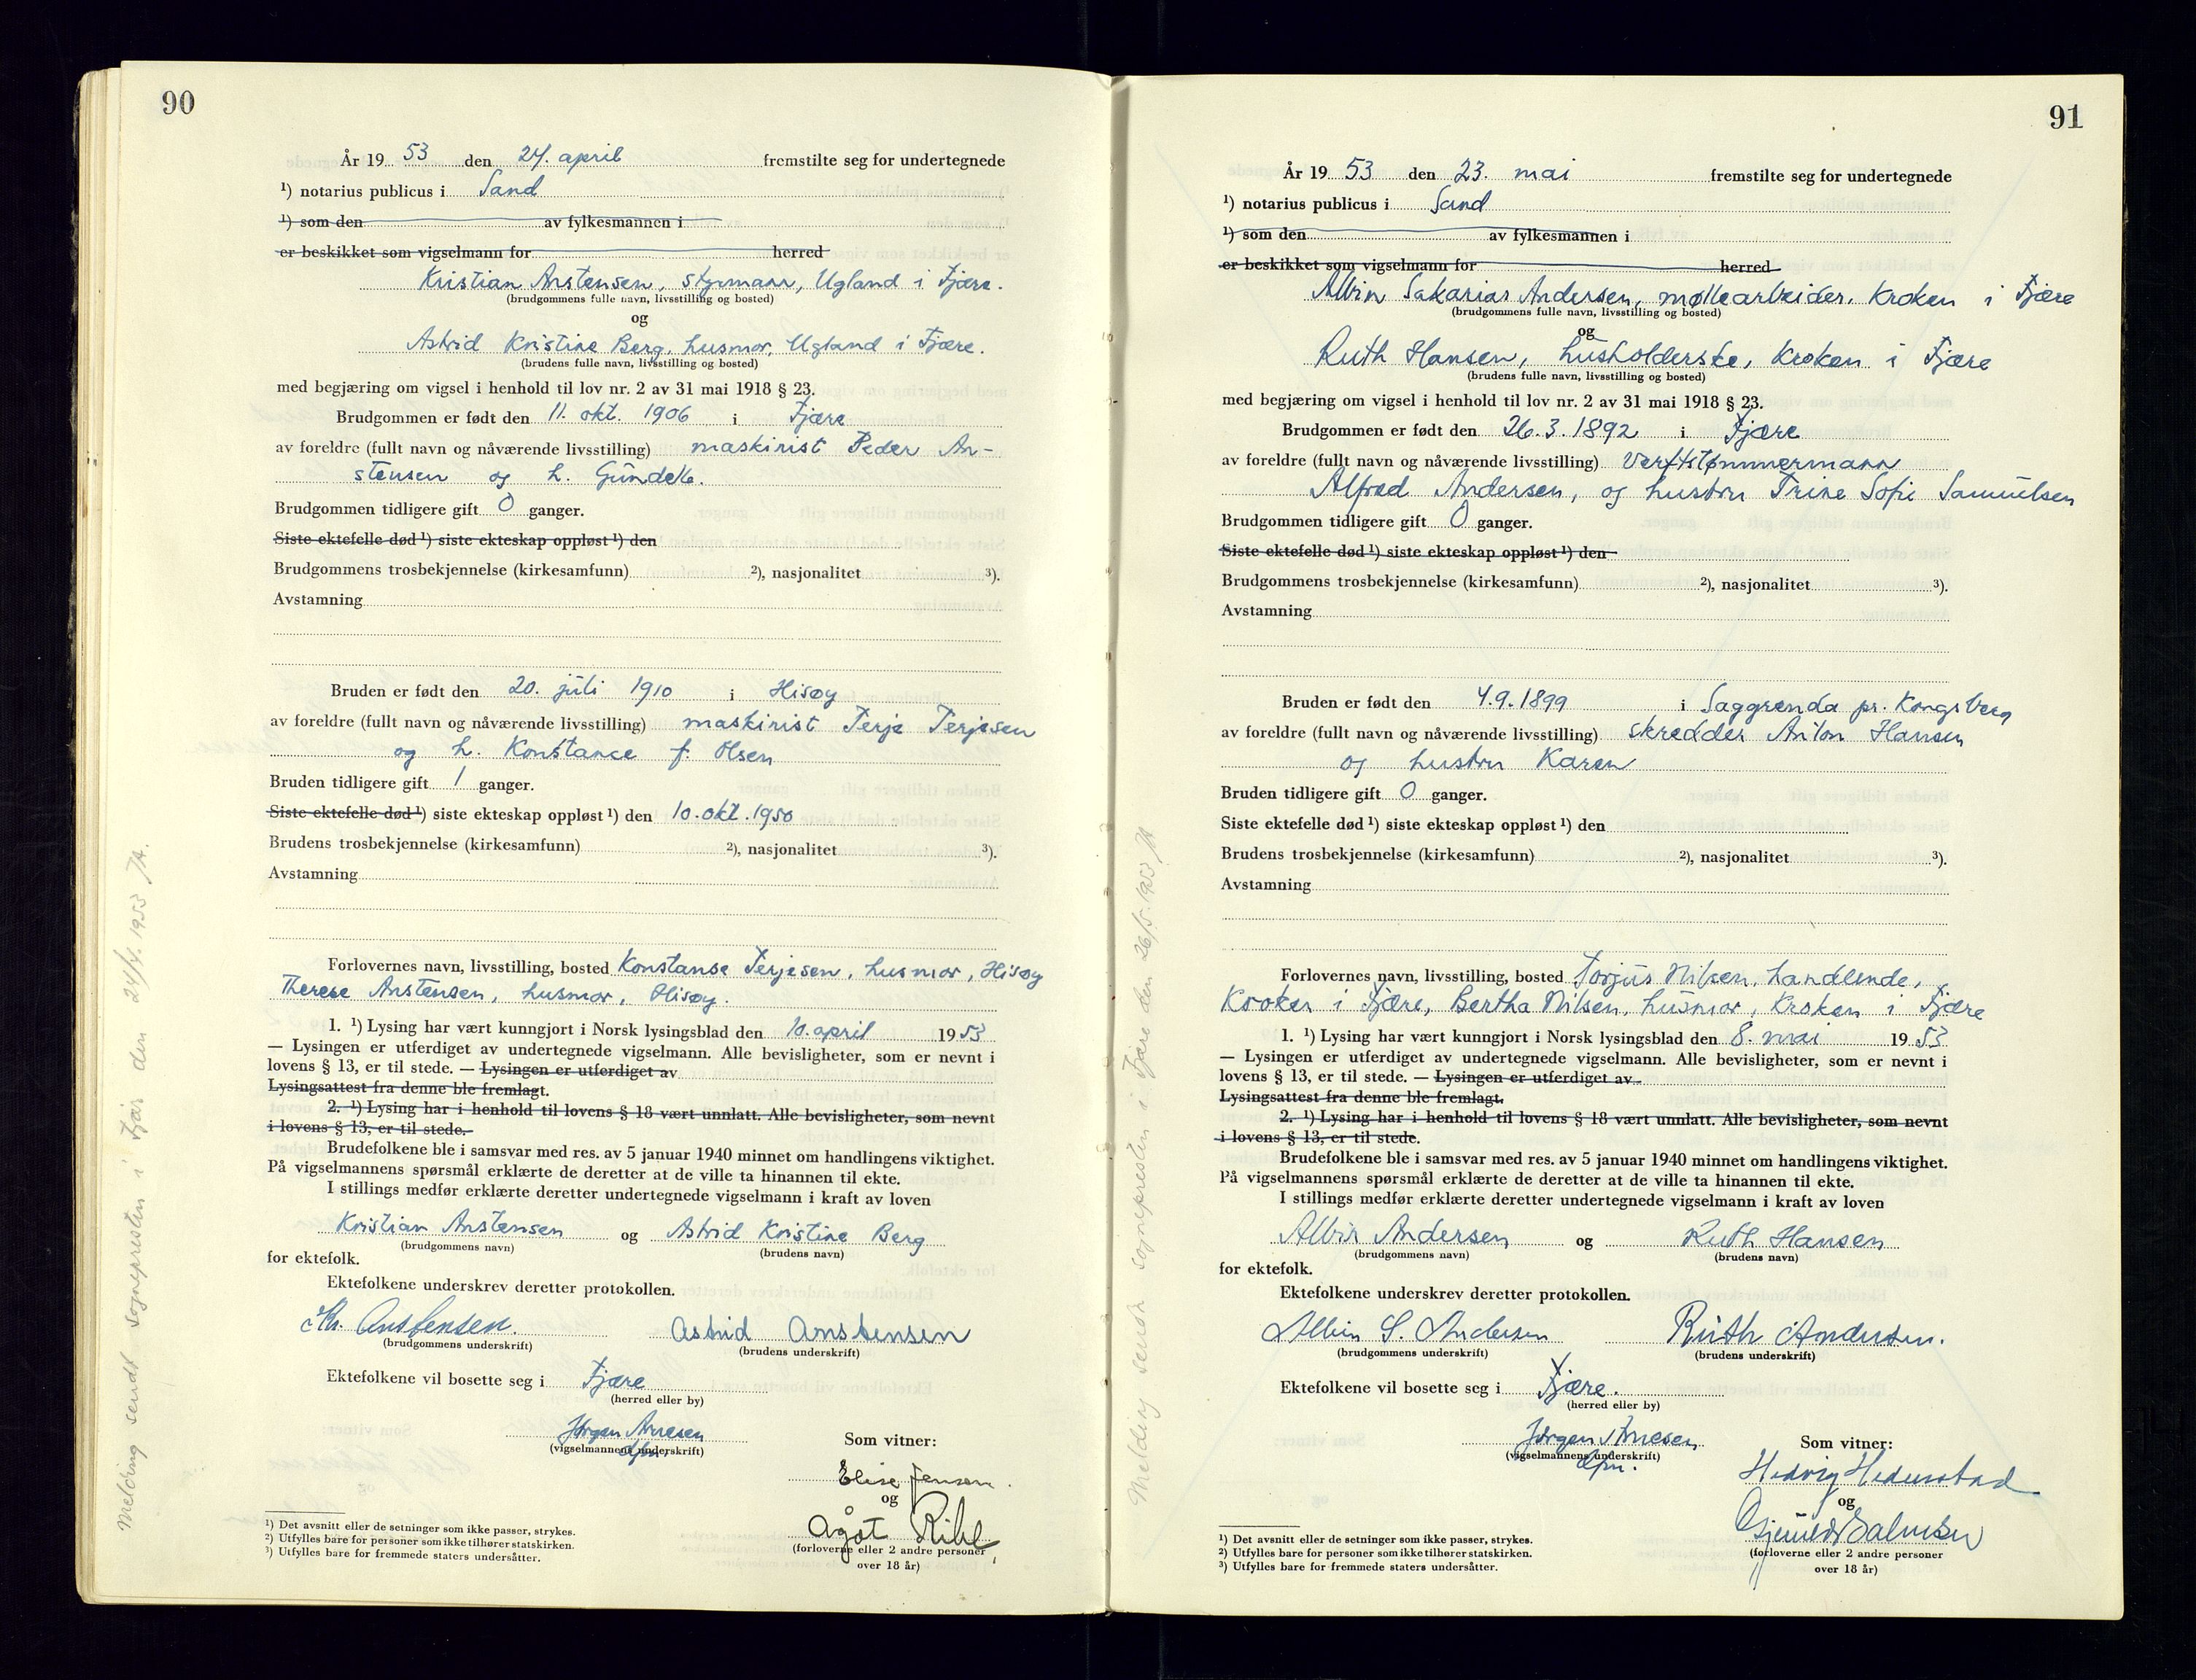 90
År 19 53 den 24. april fremstilte seg for undertegnede
¹) notarius publicus i Sand
¹) som den av fylkesmannen i
er beskikket som vigselmann for herred
Kristian Anstensen, styrmann, Ugland i Fjære.
(brudgommens fulle navn, livsstilling og bosted)
og
Astrid Kristine Berg, husmor, Ugland i Fjære.
(brudens fulle navn, livsstilling og bosted)
med begjæring om vigsel i henhold til lov nr. 2 av 31 mai 1918 § 23.
Brudgommen er født den 11. okt. 1906 i Fjære
av foreldre (fullt navn og nåværende livsstilling) maskinist Peder An-
stensen og h. Gunde
Brudgommen tidligere gift 0 ganger.
Siste ektefelle død ¹) siste ekteskap oppløst ¹) den
Brudgommens trosbekjennelse (kirkesamfunn) ²), nasjonalitet ³).
Avstamning
Bruden er født den 20. juli 1910 i Hisøy
av foreldre (fullt navn og nåværende livsstilling) maskinist Terje Terjesen
og h. Konstance f. Olsen
Bruden tidligere gift 1 ganger.
Siste ektefelle død ¹) siste ekteskap oppløst ¹) den 10. okt. 1950
Brudens trosbekjennelse (kirkesamfunn) ²), nasjonalitet ³).
Avstamning
Forlovernes navn, livsstilling, bosted Konstanse Terjesen, husmor, Hisøy
Therese Anstensen, husmor, Hisøy.
1. ¹) Lysing har vært kunngjort i Norsk lysingsblad den 10. april 1953
— Lysingen er utferdiget av undertegnede vigselmann. Alle bevisligheter, som er nevnt i
lovens § 13, er til stede. — Lysingen er utferdiget av
Lysingsattest fra denne ble fremlagt.
2. ¹) Lysing har i henhold til lovens § 18 vært unnlatt. Alle bevisligheter, som nevnt
i lovens § 13, er til stede.
Brudefolkene ble i samsvar med res. av 5 januar 1940 minnet om handlingens viktighet.
På vigselmannens spørsmål erklærte de deretter at de ville ta hinannen til ekte.
I stillings medfør erklærte deretter undertegnede vigselmann i kraft av loven
Kristian Anstensen og Astrid Kristine Berg
(brudgommens navn) (brudens navn)
for ektefolk.
Ektefolkene underskrev deretter protokollen.
Kr. Anstensen. Astrid Anstensen
(brudgommens underskrift) (brudens underskrift)
Ektefolkene vil bosette seg i Fjære
(herred eller by)
Jørgen Arnesen
(vigselmannens underskrift)
Som vitner:
Elise Jensen.
og
Ågot Rihl
(forloverne eller 2 andre personer
over 18 år)
¹) Det avsnitt eller de setninger som ikke passer, strykes.
²) Utfylles bare for personer som ikke tilhører statskirken.
³) Utfylles bare for fremmede staters undersåtter.
Melding sendt sognepresten i Fjære den 24/4. 1953 JA.
91
År 19 53 den 23. mai fremstilte seg for undertegnede
¹) notarius publicus i Sand
¹) som den av fylkesmannen i
er beskikket som vigselmann for herred
Albin Sakarias Andersen, møllearbeider, Kroken i Fjære
(brudgommens fulle navn, livsstilling og bosted)
og
Ruth Hansen, husholderske, Kroken i Fjære
(brudens fulle navn, livsstilling og bosted)
med begjæring om vigsel i henhold til lov nr. 2 av 31 mai 1918 § 23.
Brudgommen er født den 26.3.1892 i Fjære
av foreldre (fullt navn og nåværende livsstilling) Verftstømmermann
Alfred Andersen, og hustru Trine Sofie Samuelsen
Brudgommen tidligere gift 0 ganger.
Siste ektefelle død ¹) siste ekteskap oppløst ¹) den
Brudgommens trosbekjennelse (kirkesamfunn) ²), nasjonalitet ³).
Avstamning
Bruden er født den 4.9.1899 i Saggrenda pr. Kongsberg
av foreldre (fullt navn og nåværende livsstilling) skredder Anton Hansen
og hustru Karen
Bruden tidligere gift 0 ganger.
Siste ektefelle død ¹) siste ekteskap oppløst ¹) den
Brudens trosbekjennelse (kirkesamfunn) ²), nasjonalitet ³).
Avstamning
Forlovernes navn, livsstilling, bosted Torjus Nilsen, handlende,
Kroken i Fjære, Bertha Nilsen, husmor, Kroken i Fjære
1. ¹) Lysing har vært kunngjort i Norsk lysingsblad den 8. mai 1953
— Lysingen er utferdiget av undertegnede vigselmann. Alle bevisligheter, som er nevnt i
lovens § 13, er til stede. — Lysingen er utferdiget av
Lysingsattest fra denne ble fremlagt.
2. ¹) Lysing har i henhold til lovens § 18 vært unnlatt. Alle bevisligheter, som nevnt
i lovens § 13, er til stede.
Brudefolkene ble i samsvar med res. av 5 januar 1940 minnet om handlingens viktighet.
På vigselmannens spørsmål erklærte de deretter at de ville ta hinannen til ekte.
I stillings medfør erklærte deretter undertegnede vigselmann i kraft av loven
Albin Andersen og Ruth Hansen
(brudgommens navn) (brudens navn)
for ektefolk.
Ektefolkene underskrev deretter protokollen.
Albin S. Andersen Ruth Andersen.
(brudgommens underskrift) (brudens underskrift)
Ektefolkene vil bosette seg i Fjære.
(herred eller by)
Jørgen Arnesen
(vigselmannens underskrift)
Som vitner:
Hedvig Hedenstad
og
(forloverne eller 2 andre personer
over 18 år)
¹) Det avsnitt eller de setninger som ikke passer, strykes.
²) Utfylles bare for personer som ikke tilhører statskirken.
³) Utfylles bare for fremmede staters undersåtter.
Melding sendt sognepresten i Fjære den 26/5. 1953 JA